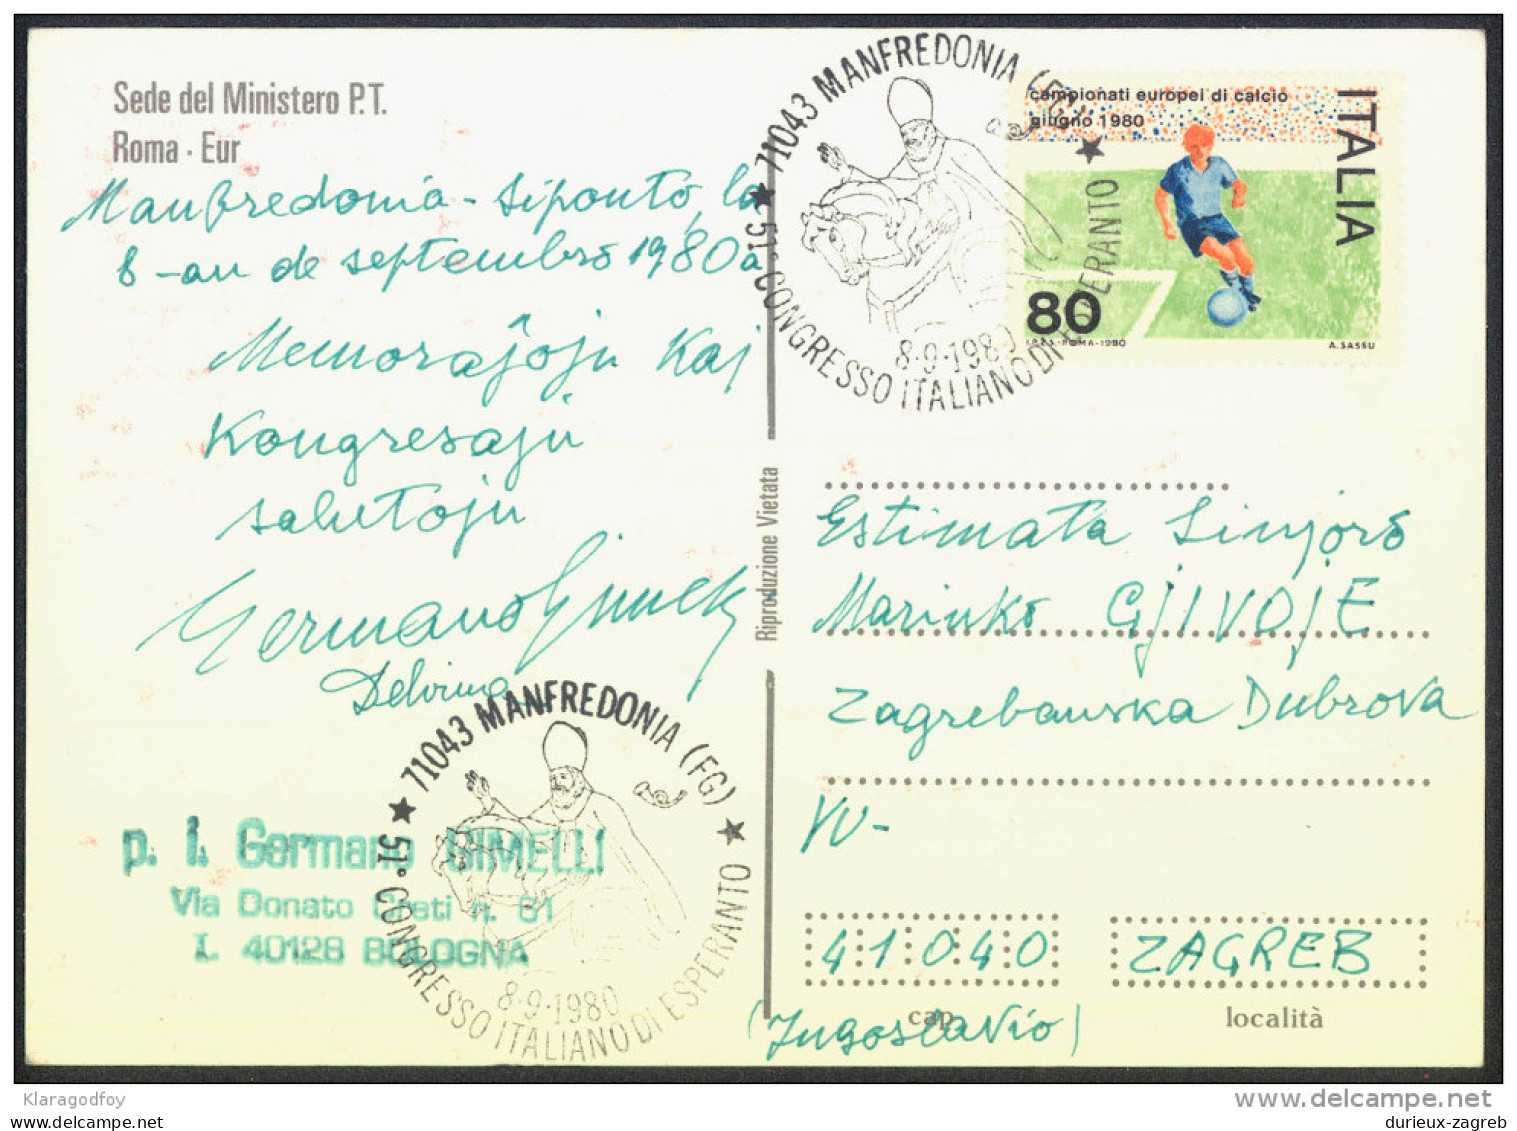 Sede del Ministero P.T.
Roma · Eur
Manfredonia - Siponto, la
8-an de septembro 1980a
Memoraĵoju kaj
Kongresaju
salutoju
Germano Gimelli
Delvina
p. i. Germano GIMELLI
Via Donato Creti n. 61
I. 40128 BOLOGNA
★ 71043 MANFREDONIA (FG) ★
51° CONGRESSO ITALIANO DI ESPERANTO
8·9·1980
Riproduzione Vietata
★ 71043 MANFREDONIA (FG) ★
51° CONGRESSO ITALIANO DI ESPERANTO
8·9·1980
campionati europei di calcio
giugno 1980
ITALIA
80
I.P.Z.S.-ROMA-1980
A. SASSU
Estimata Sinjoro
Marinko GJIVOJE
Zagrebanska Dubrova
YU-
41040 ZAGREB
cap località
(Jugoslavio)
Klaragodfoy
delcampe.net
durieux-zagreb